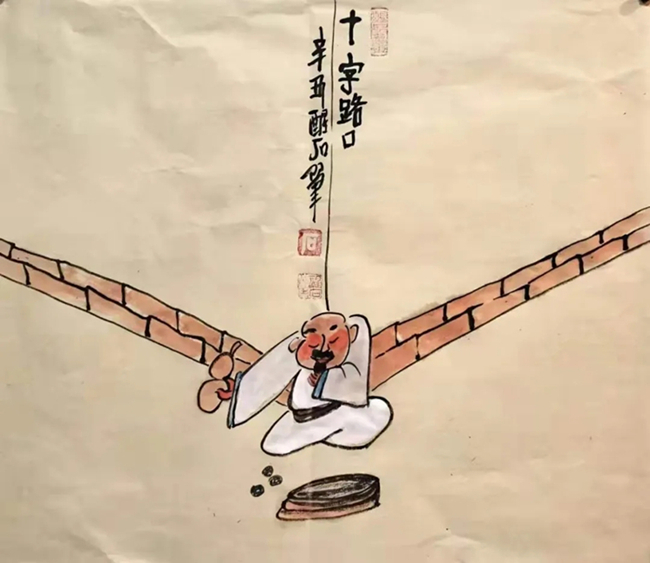 十字路口
辛丑醒石筆
石